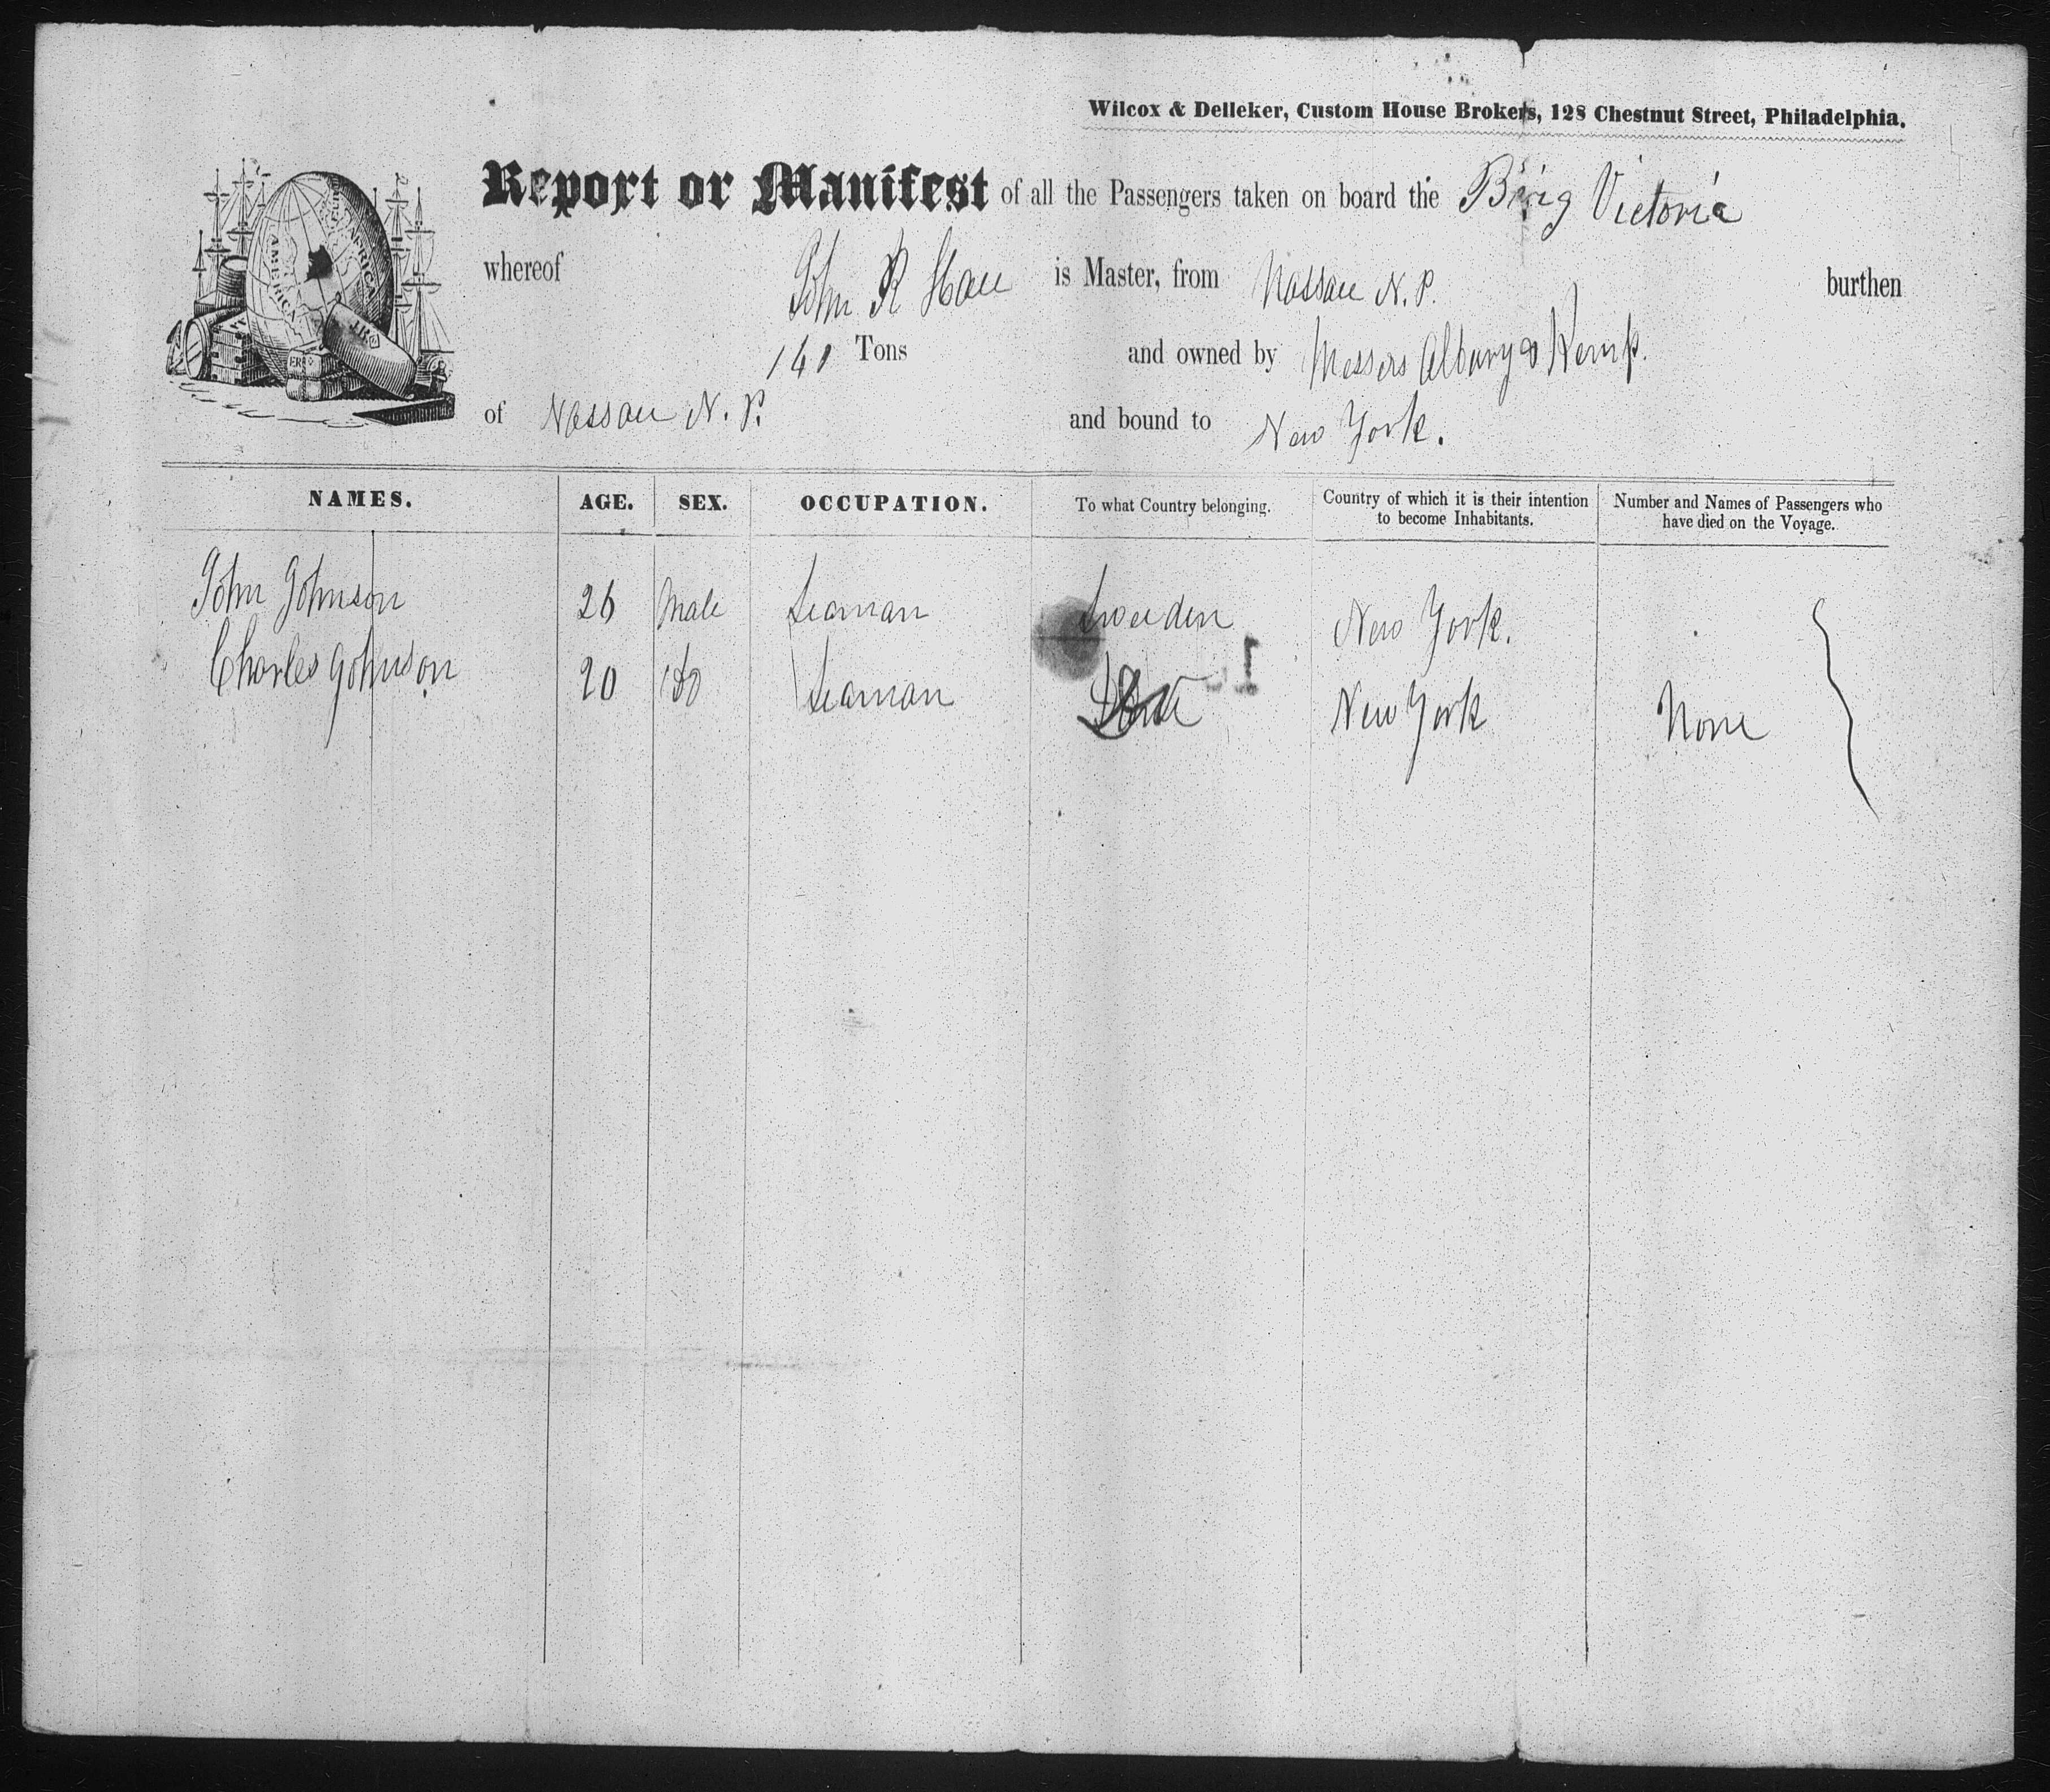 Wilcox & Delleker, Custom House Brokers, 128 Chestnut Street, Philadelphia.
Report or Manifest of all the Passengers taken on board the Brig Victoria
whereof John R is Master, from Nassau N. P. burthen
Tons and owned by Messers Albury & Kemp.
of Nassau N. P. and bound to New York.
NAMES. AGE. SEX. OCCUPATION. To what Country belonging. Country of which it is their intention to become Inhabitants. Number and Names of Passengers who have died on the Voyage.
John Johnson 26 Male Seaman Sweden New York.
Charles Johnson 20 do Seaman New York None
AMERICA
AFRICA